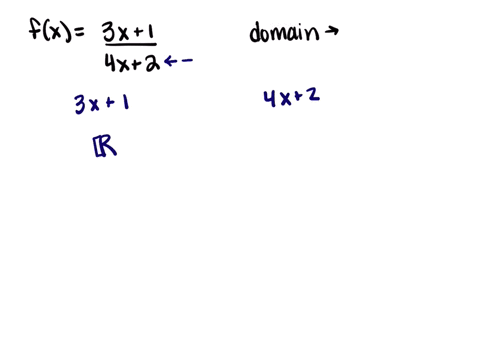 f(x) = 3x+1 / 4x+2 ←–
domain →
3x+1
4x+2
ℝ